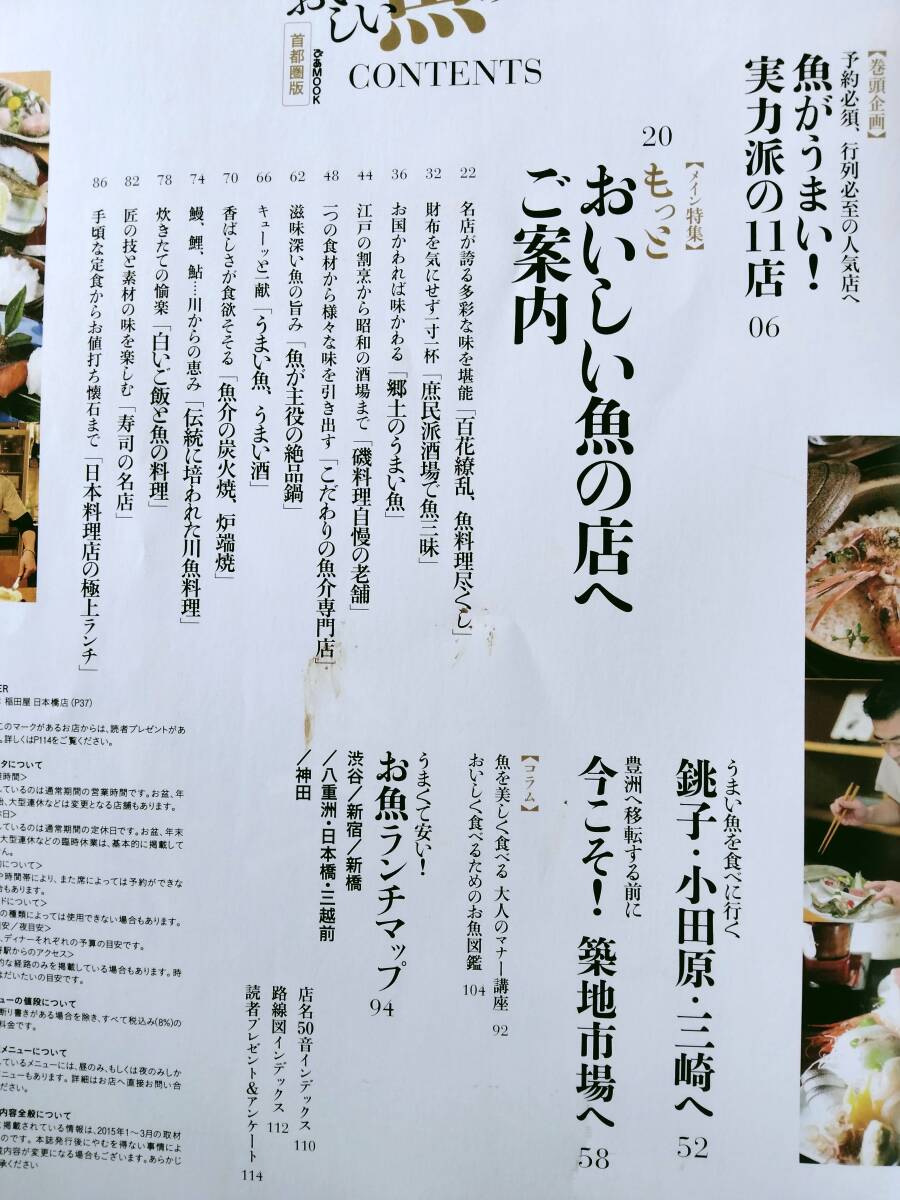 おいしい魚
首都圏版
ぴあMOOK
CONTENTS
【巻頭企画】
予約必須、行列必至の人気店へ
魚がうまい!
実力派の11店 06
【メイン特集】
20 もっと
おいしい魚の店へ
ご案内
22 名店が誇る多彩な味を堪能「百花繚乱、魚料理尽くし」
32 財布を気にせず一寸一杯「庶民派酒場で魚三昧」
36 お国かわれば味かわる「郷土のうまい魚」
44 江戸の割烹から昭和の酒場まで「磯料理自慢の老舗」
48 一つの食材から様々な味を引き出す「こだわりの魚介専門店」
62 滋味深い魚の旨み「魚が主役の絶品鍋」
66 キューッと一献「うまい魚、うまい酒」
70 香ばしさが食欲そそる「魚介の炭火焼、炉端焼」
74 鰻、鯉、鮎…川からの恵み「伝統に培われた川魚料理」
78 炊きたての愉楽「白いご飯と魚の料理」
82 匠の技と素材の味を楽しむ「寿司の名店」
86 手頃な定食からお値打ち懐石まで「日本料理店の極上ランチ」
うまい魚を食べに行く
銚子・小田原・三崎へ 52
豊洲へ移転する前に
今こそ! 築地市場へ 58
【コラム】
魚を美しく食べる 大人のマナー講座 92
おいしく食べるためのお魚図鑑 104
うまくて安い!
お魚ランチマップ 94
渋谷/新宿/新橋
/八重洲・日本橋・三越前
/神田
店名50音インデックス 110
路線図インデックス 112
読者プレゼント&アンケート 114
ER
稲田屋 日本橋店(P37)
このマークがあるお店からは、読者プレゼントがあ
。詳しくはP114をご覧ください。
タについて
業時間>
しているのは通常期間の営業時間です。お盆、年
始、大型連休などは変更となる店舗もあります。
休日>
しているのは通常期間の定休日です。お盆、年末
大型連休などの臨時休業は、基本的に掲載して
せん。
について>
や時間帯により、また席によっては予約ができな
合もあります。
ドについて>
の種類によっては使用できない場合もあります。
目安/夜目安>
、ディナーそれぞれの予算の目安です。
駅からのアクセス>
的な経路のみを掲載している場合もあります。時
はだいたいの目安です。
ューの値段について
断り書きがある場合を除き、すべて税込み(8%)の
料金です。
メニューについて
しているメニューには、昼のみ、もしくは夜のみしか
ニューもあります。詳細はお店へ直接お問い合
ださい。
内容全般について
に掲載されている情報は、2015年1〜3月の取材
のです。本誌発行後にやむを得ない事情によ
載内容が変更になる場合もございます。あらかじ
承ください